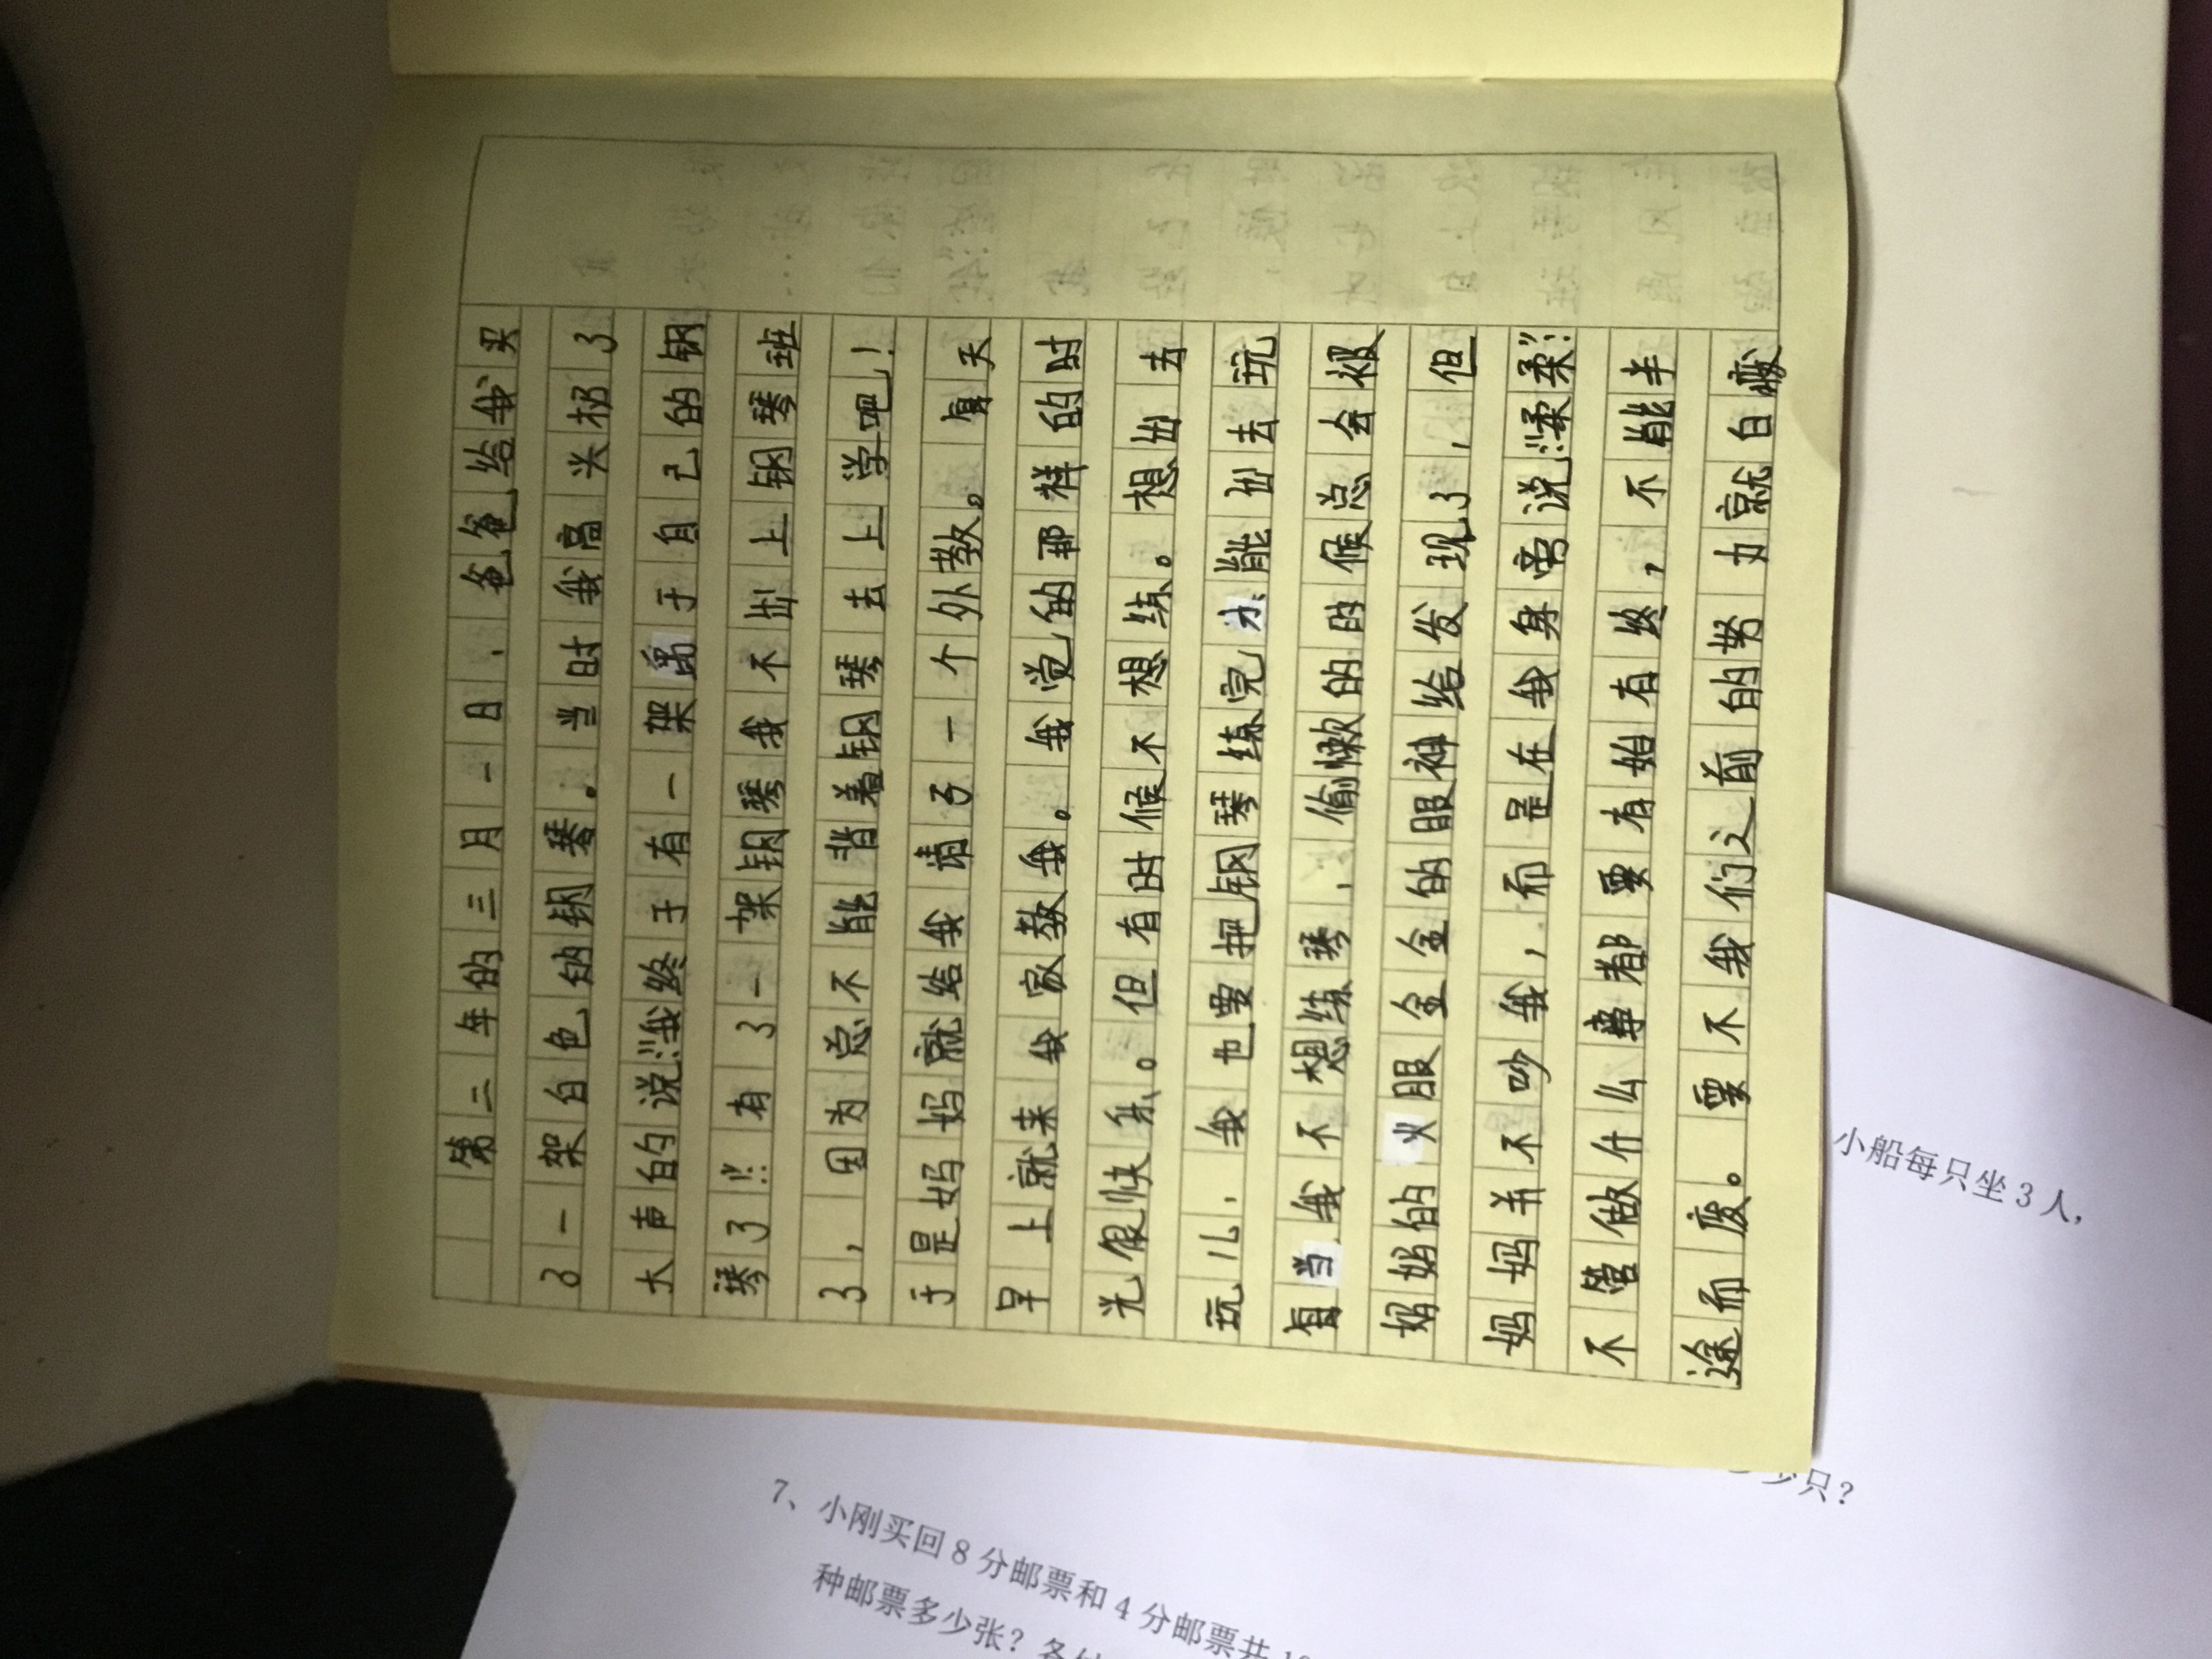 第二年的三月一日，爸爸给我买
了一架白色的钢琴。当时我高兴扔了
大声的说：“我终于有一架属于自己的钢
琴了！”有了一架钢琴我不岀上钢琴班
了，因为总不能背着钢琴去上学吧！
于是妈妈就给我请了一个外教。每天
早上就来我家教我。我觉的那样的时
光很快乐。但有时候不想练。想出去
玩儿，我也要把钢琴练完才能出去玩
每当我不想练琴，偷懒的时候总会被
妈妈的火眼金金的眼神给发现了，但
妈妈并不吵我，而是在我身旁说：“柔柔！
不管做什么事都要有始有终，不能半
途而废。要不我们之前的努力就白废
小船每只坐3人，
少只？
7、小刚买回8分邮票和4分邮票共
种邮票多少张？各